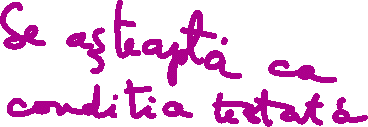 Se așteaptă ca
conditia testată